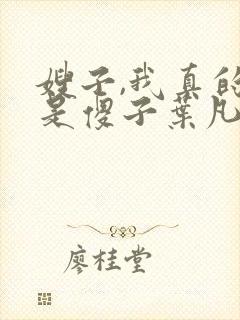 嫂子,我真的
是傻子叶凡
廖桂堂